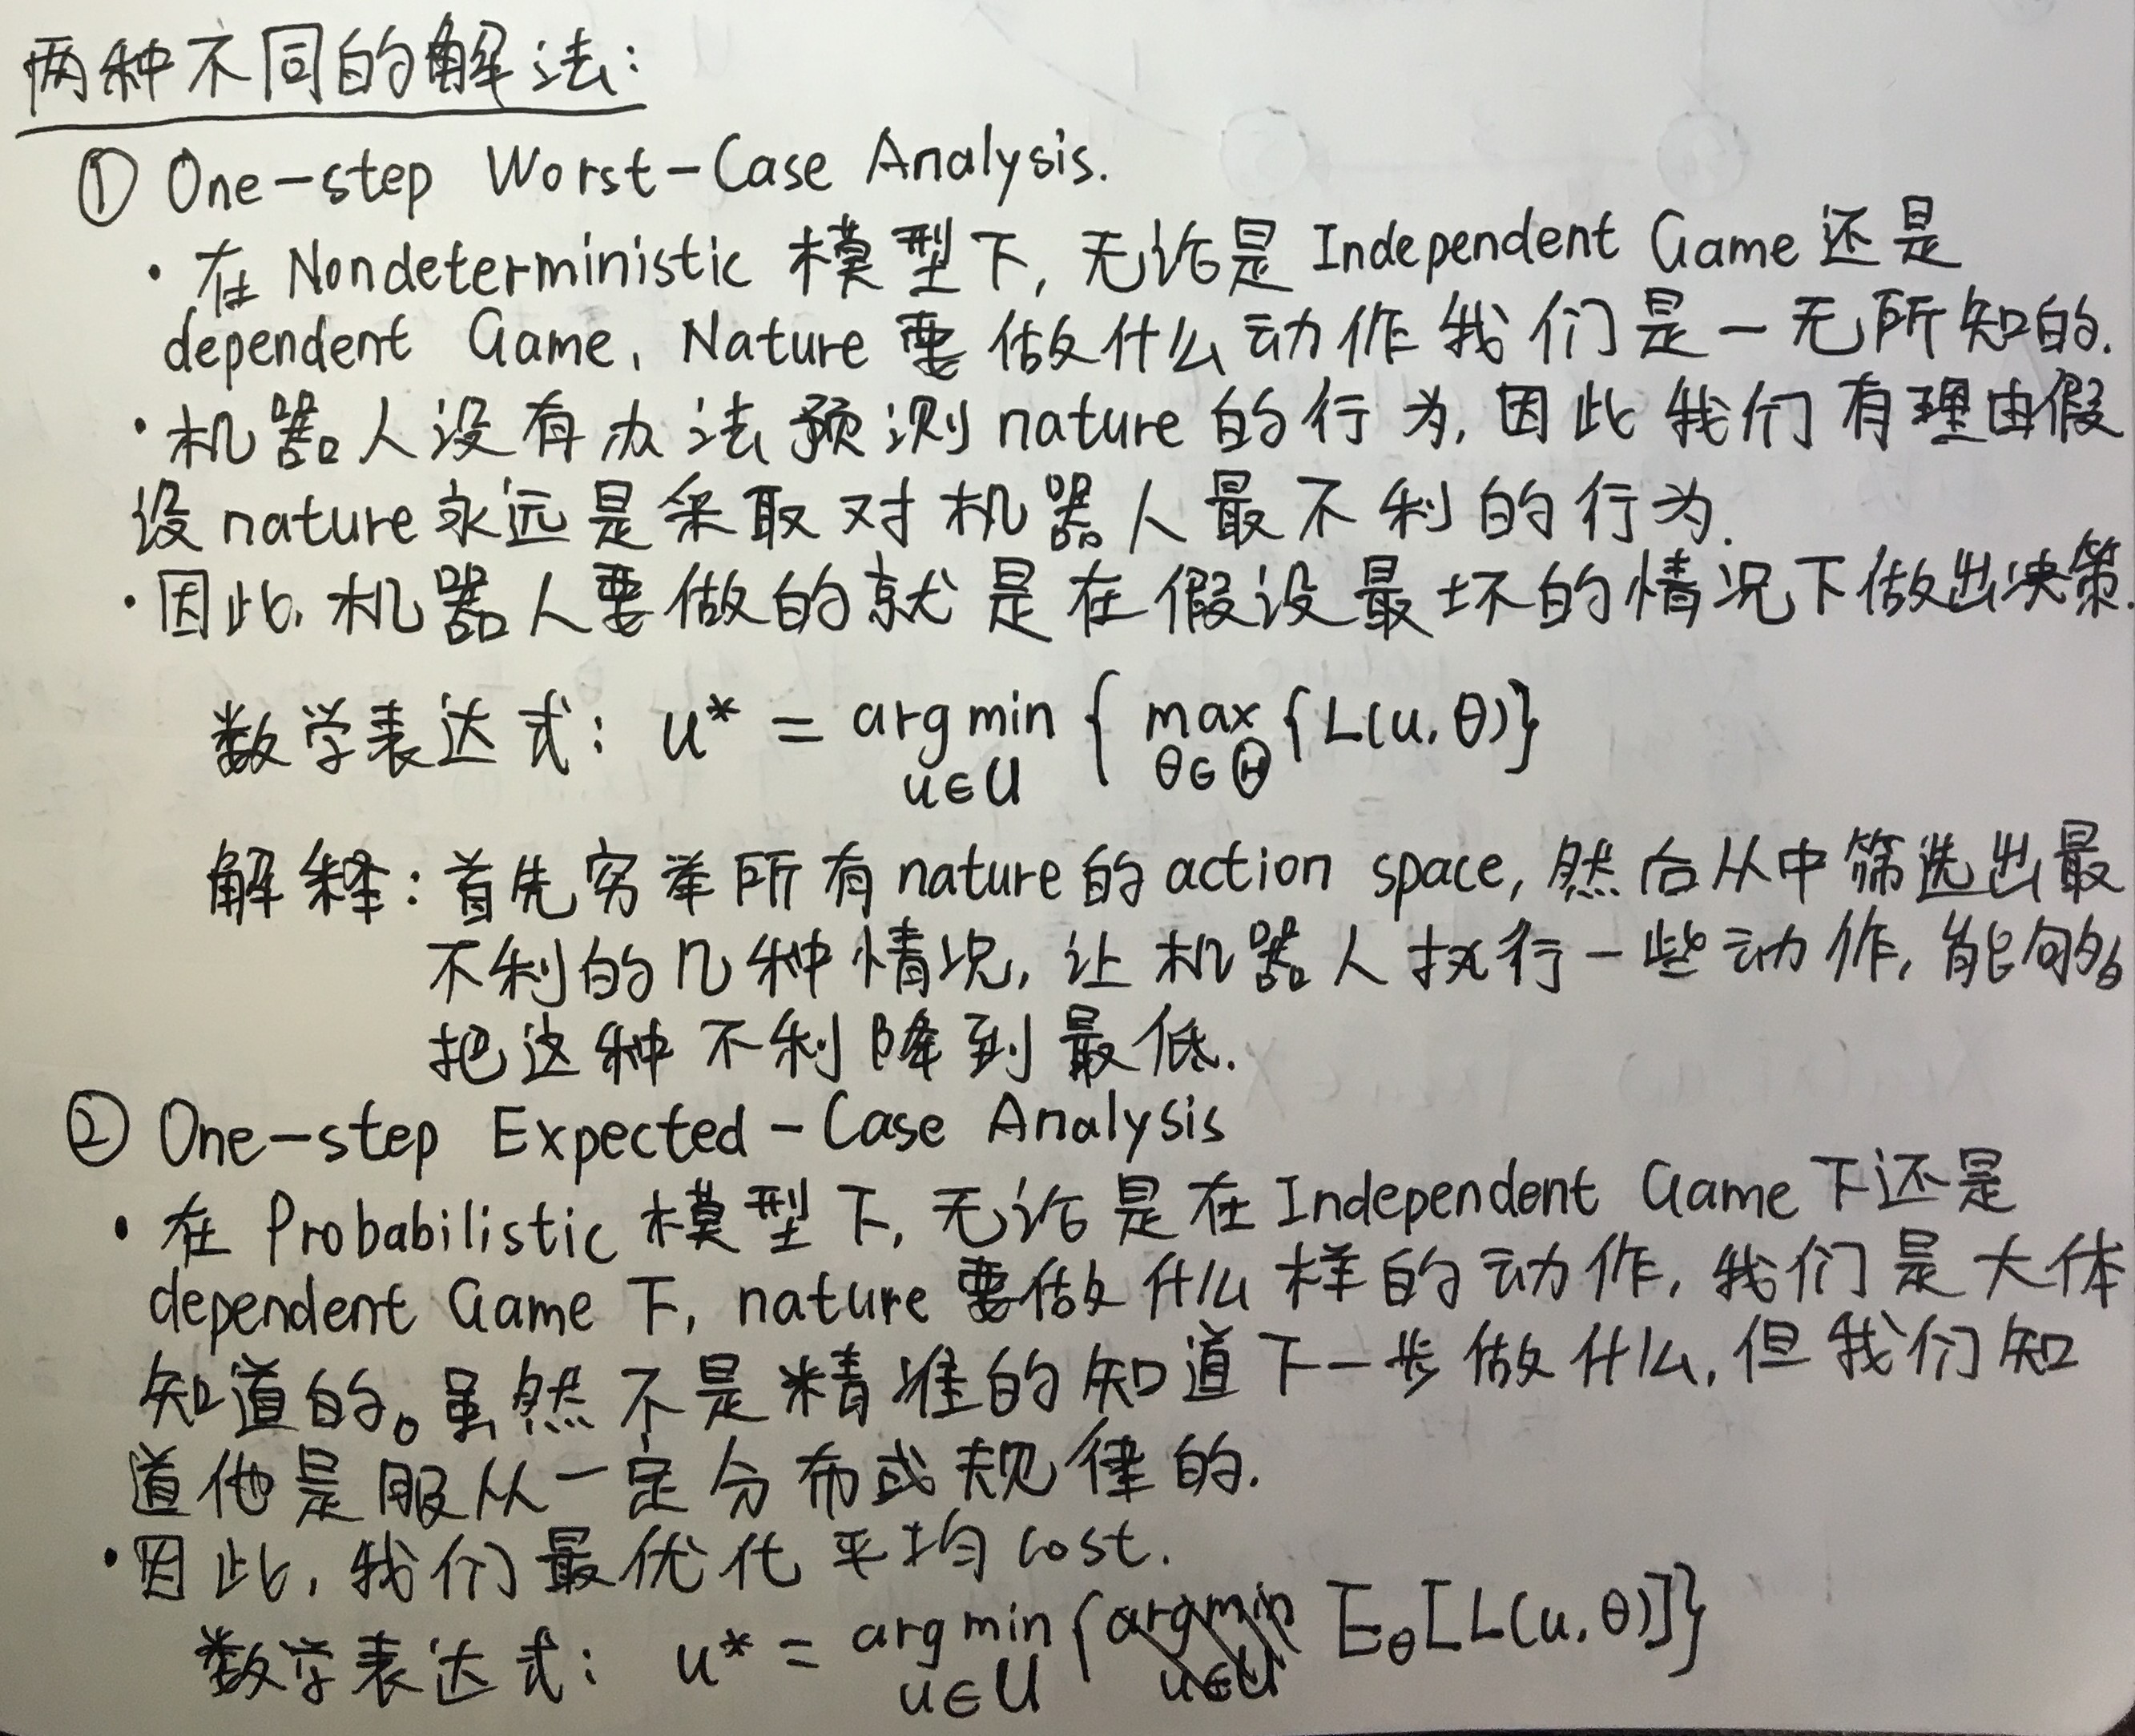 两种不同的解法:
① One-step Worst-Case Analysis.
· 在 Nondeterministic 模型下, 无论是 Independent Game 还是
dependent Game, Nature 要做什么动作我们是一无所知的.
· 机器人没有办法预测 nature 的行为, 因此我们有理由假
设 nature 永远是采取对机器人最不利的行为.
· 因此, 机器人要做的就是在假设最坏的情况下做出决策.
数学表达式: u* = arg min { max {L(u, θ)}
u∈U θ∈Θ
解释: 首先穷举所有 nature 的 action space, 然后从中筛选出最
不利的几种情况, 让机器人执行一些动作, 能够
把这种不利降到最低.
② One-step Expected-Case Analysis
· 在 Probabilistic 模型下, 无论是在 Independent Game 下还是
dependent Game 下, nature 要做什么样的动作, 我们是大体
知道的。虽然不是精准的知道下一步做什么, 但我们知
道他是服从一定分布或规律的.
· 因此, 我们最优化平均 cost.
数学表达式: u* = arg min { argmin E_θ[L(u, θ)]}
u∈U u∈U